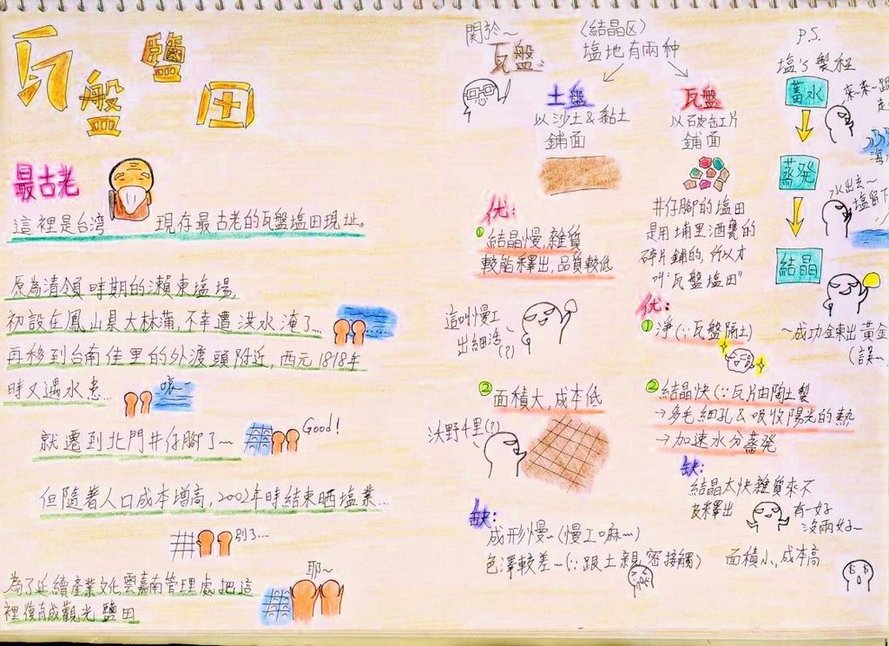 瓦盤鹽田
最古老
這裡是台湾 現存最古老的瓦盤塩田現址。
原為清領時期的瀨東塩場
初設在鳳山縣大林蒲,不幸遭洪水淹了...
再移到台南佳里的外渡頭附近,西元1818年
時又遇水患... 咳~
就遷到北門井仔腳了~ Good!
但隨著人口成本增高,2002年時結束晒塩業...
別了...
耶~
為了延續產業文化雲嘉南管理處把這
裡復育成觀光鹽田
関於~
瓦盤
(結晶区)
塩地有兩种
土盤
以沙土&黏土
鋪面
优:
①結晶慢,雜質
較能釋出,品質較低
這叫慢工
出細活~
(?)
②面積大,成本低
沃野千里(?)
缺:
成形慢~(慢工嘛~)
色澤較差~(∵跟土親密接觸)
瓦盤
以破缸片
鋪面
井仔腳的塩田
是用埔里酒甕的
碎片鋪的,所以才
叫"瓦盤塩田"
优:
①淨(∵瓦盤隔土)
②結晶快(∵瓦片由陶土製
→多毛細孔&吸收陽光的熱
→加速水分蒸發
缺:
結晶太快雜質來不
及釋出
有一好
沒兩好~
面積小,成本高
P.S.
塩's製程
蓄水
來~來~跟
海
蒸発
水出去~
塩留下
結晶
~成功鍊出黃金
(誤~